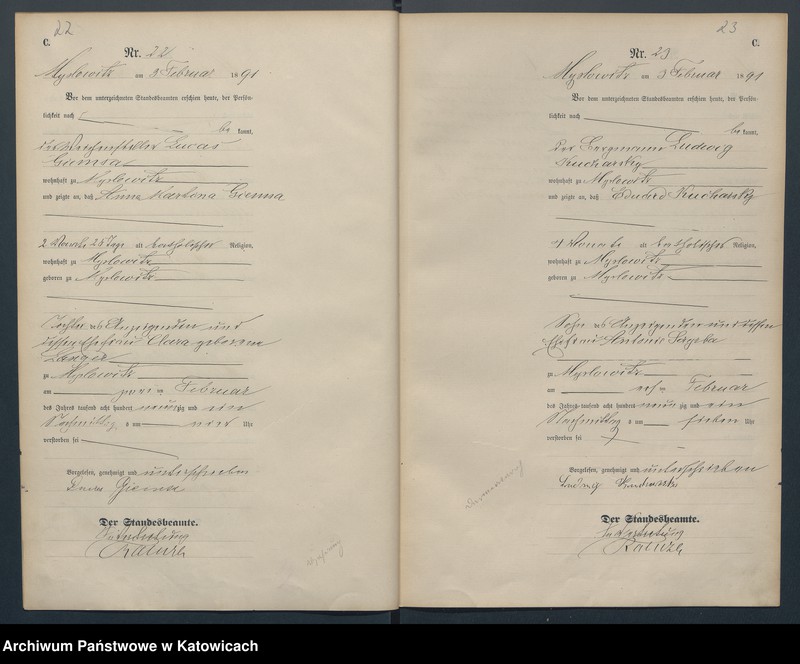 22
C.
Nr. 22
Myslowitz am 3 Februar 1891
Vor dem unterzeichneten Standesbeamten erschien heute, der Persön-
lichkeit nach
be kannt,
der Weichensteller Lucas
wohnhaft zu Myslowitz
und zeigte an, daß
2 Monate 28 Tage alt katholischer Religion,
wohnhaft zu Myslowitz
geboren zu Myslowitz
Tochter des Anzeigenden und
dessen Ehefrau Clara geborene
zu Myslowitz
am zwei ten Februar
des Jahres tausend acht hundert neun zig und ein
Nachmittag s um Uhr
verstorben sei
Vorgelesen, genehmigt und unterschrieben
Lucas
Der Standesbeamte.
In Vertretung
23
C.
Nr. 23
Myslowitz am 3 Februar 1891
Vor dem unterzeichneten Standesbeamten erschien heute, der Persön-
lichkeit nach
be kannt,
der Bergmann Ludwig
Kucharsky
wohnhaft zu Myslowitz
und zeigte an, daß Eduard Kucharsky
Monate alt katholischer Religion,
wohnhaft zu Myslowitz
geboren zu Myslowitz
Sohn des Anzeigenden und dessen
Ehefrau
zu Myslowitz
am ten Februar
des Jahres tausend acht hundert neun zig und ein
Nachmittag s um sieben Uhr
verstorben sei
Vorgelesen, genehmigt und unterschrieben
Ludwig
Der Standesbeamte.
In Vertretung
Archiwum Państwowe w Katowicach